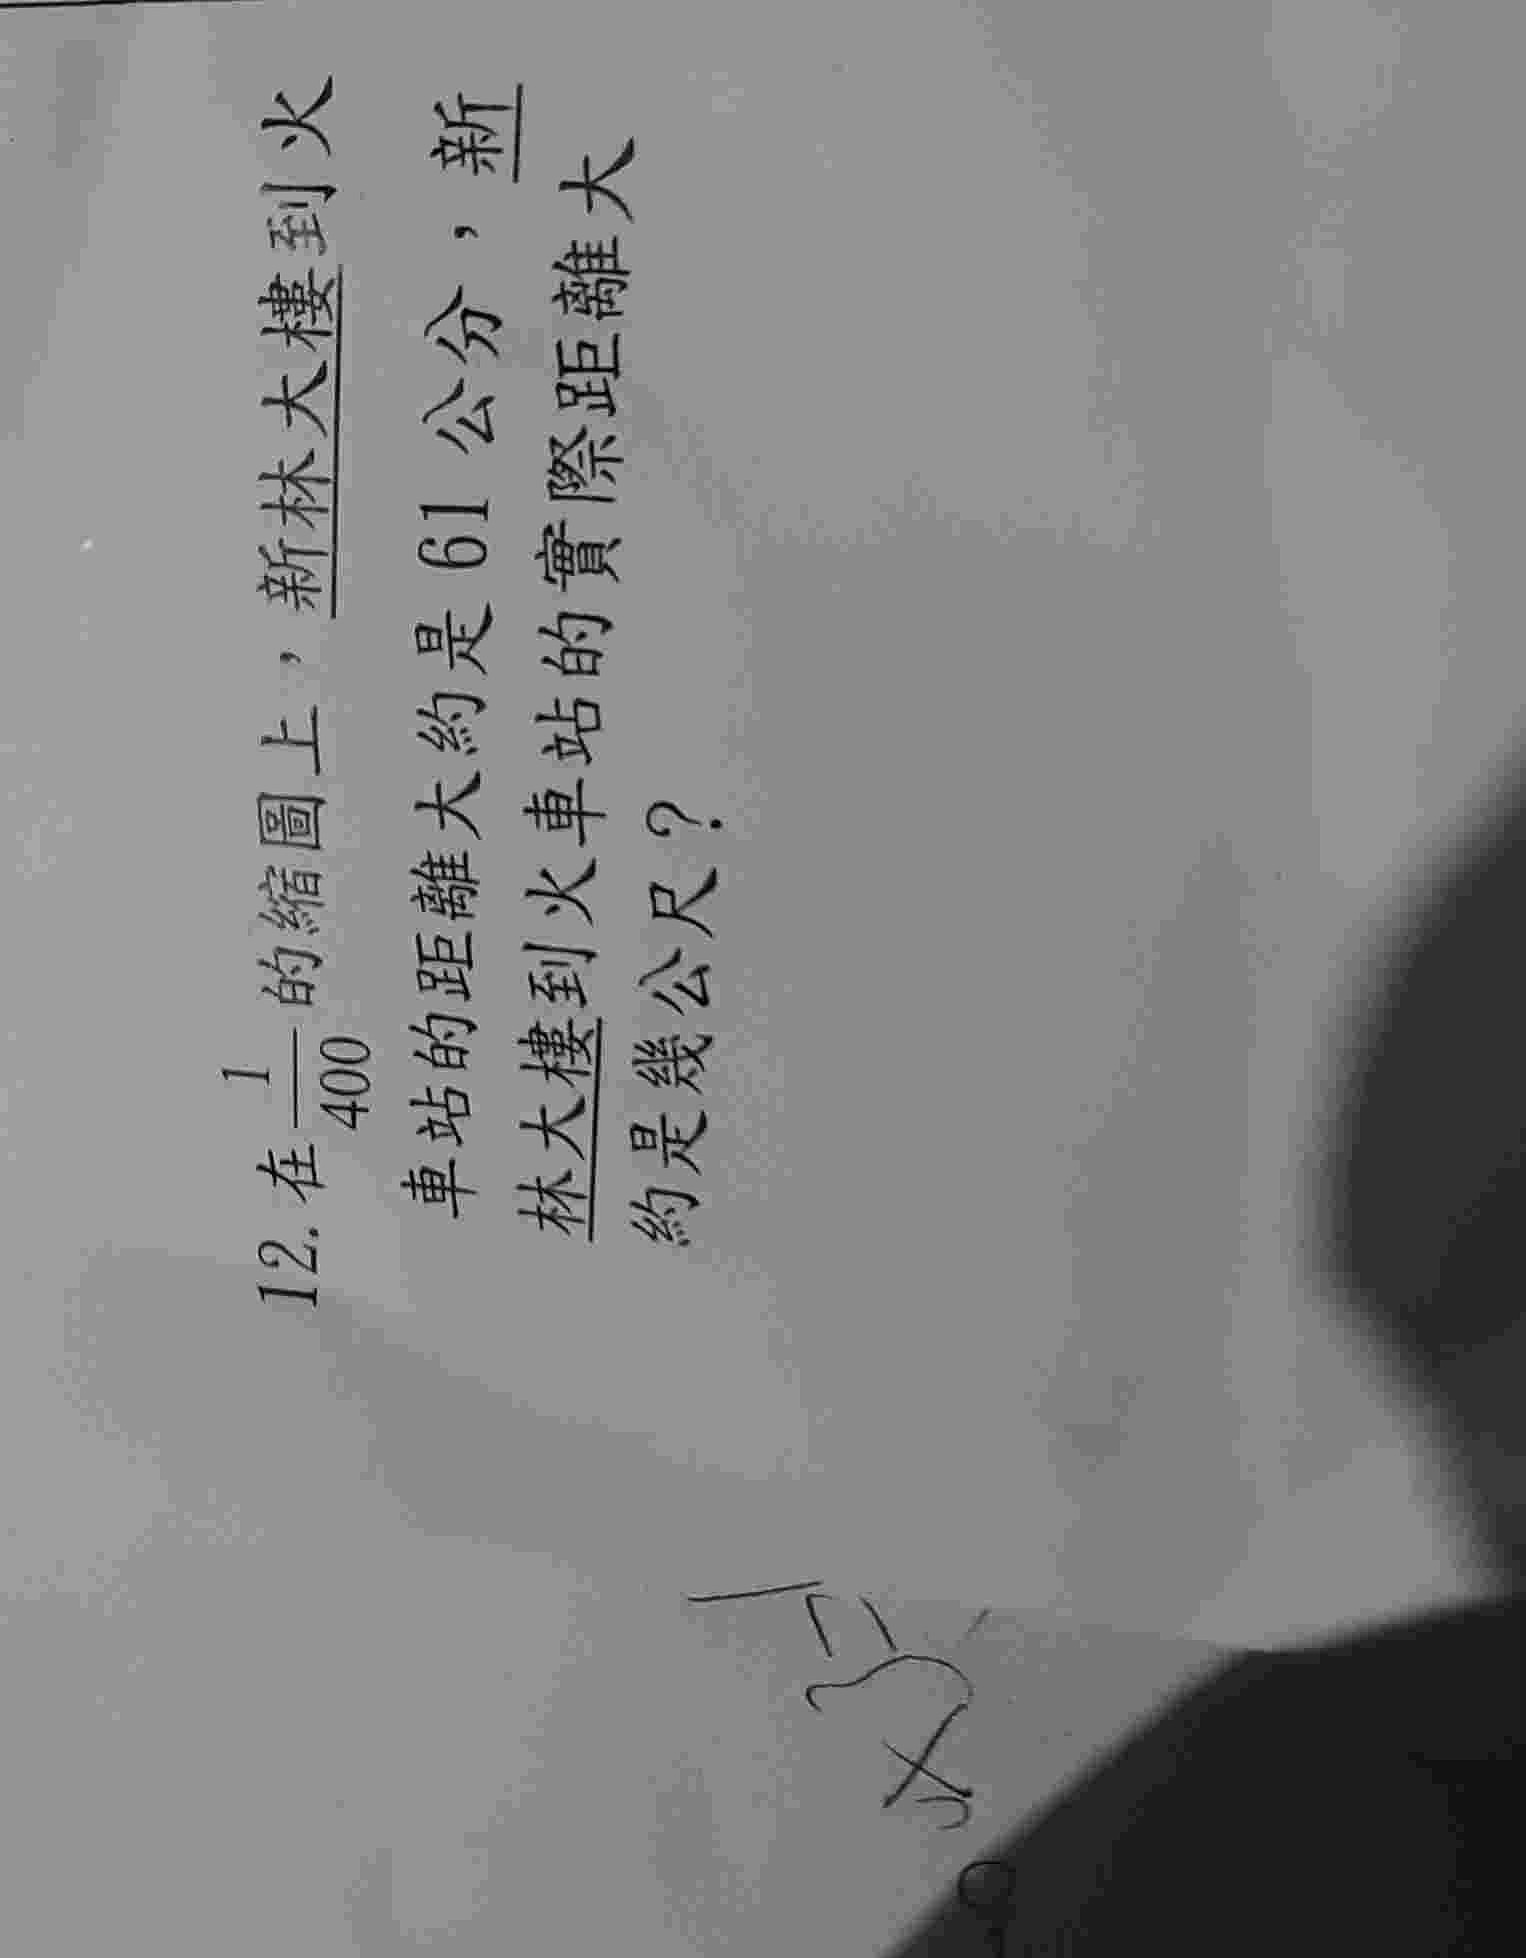 12. 在 1/400 的縮圖上，新林大樓到火
車站的距離大約是 61 公分，新
林大樓到火車站的實際距離大
約是幾公尺？